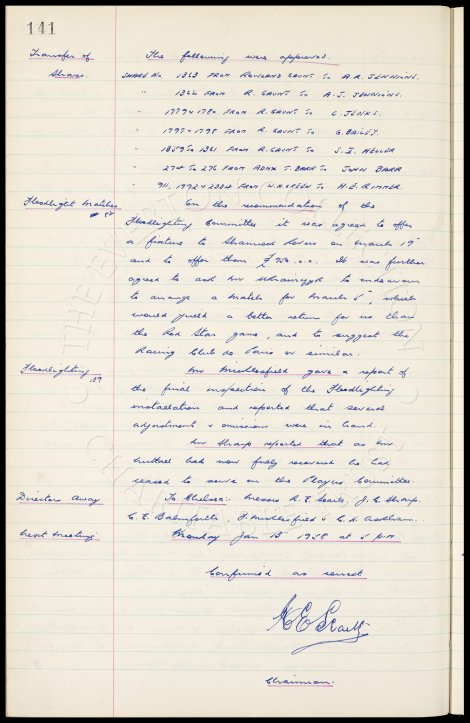 141
Transfer of Shares. The following were approved.
SHARE NO 1363 FROM ROWLAND GAUNT TO A.R. JENNIONS.
" 1362 FROM R. GAUNT TO A.J. JENNIONS.
" 1779 & 1780 FROM R. GAUNT TO C. JENKS.
" 1797 & 1798 FROM R. GAUNT TO G. BAILEY.
" 1359 TO 1361 FROM R. GAUNT TO S.I. HELLER
" 274 TO 276 FROM ADMX T. BARR TO JOHN BARR
" 911, 1792 & 2234 FROM W.H. GREEN TO H.E. RIMMER.
Floodlight Matches On the recommendation of the
Floodlighting Committee it was agreed to offer
a fixture to Shamrock Rovers on March 19
and to offer them £750.0.0. It was further
agreed to ask Mr to endeavour
to arrange a match for March 5, which
would yield a better return for us than
the Red Star game, and to suggest the
Racing Club de Paris or similar.
Floodlighting 89 Mr Micklesfield gave a report of
the final inspection of the Floodlighting
installation and reported that several
adjustment & omissions were in hand.
Mr Sharp reported that as Mr
had now fully recovered he had
ceased to serve on the Players Committee.
Directors Away To Chelsea:- Messrs R.E. Searle, J.C. Sharp.
C.E. Balmforth, F. Micklesfield & C.H. Askham.
Next Meeting Monday Jan 13 1958 at 5 P.M
Confirmed as correct
Chairman.